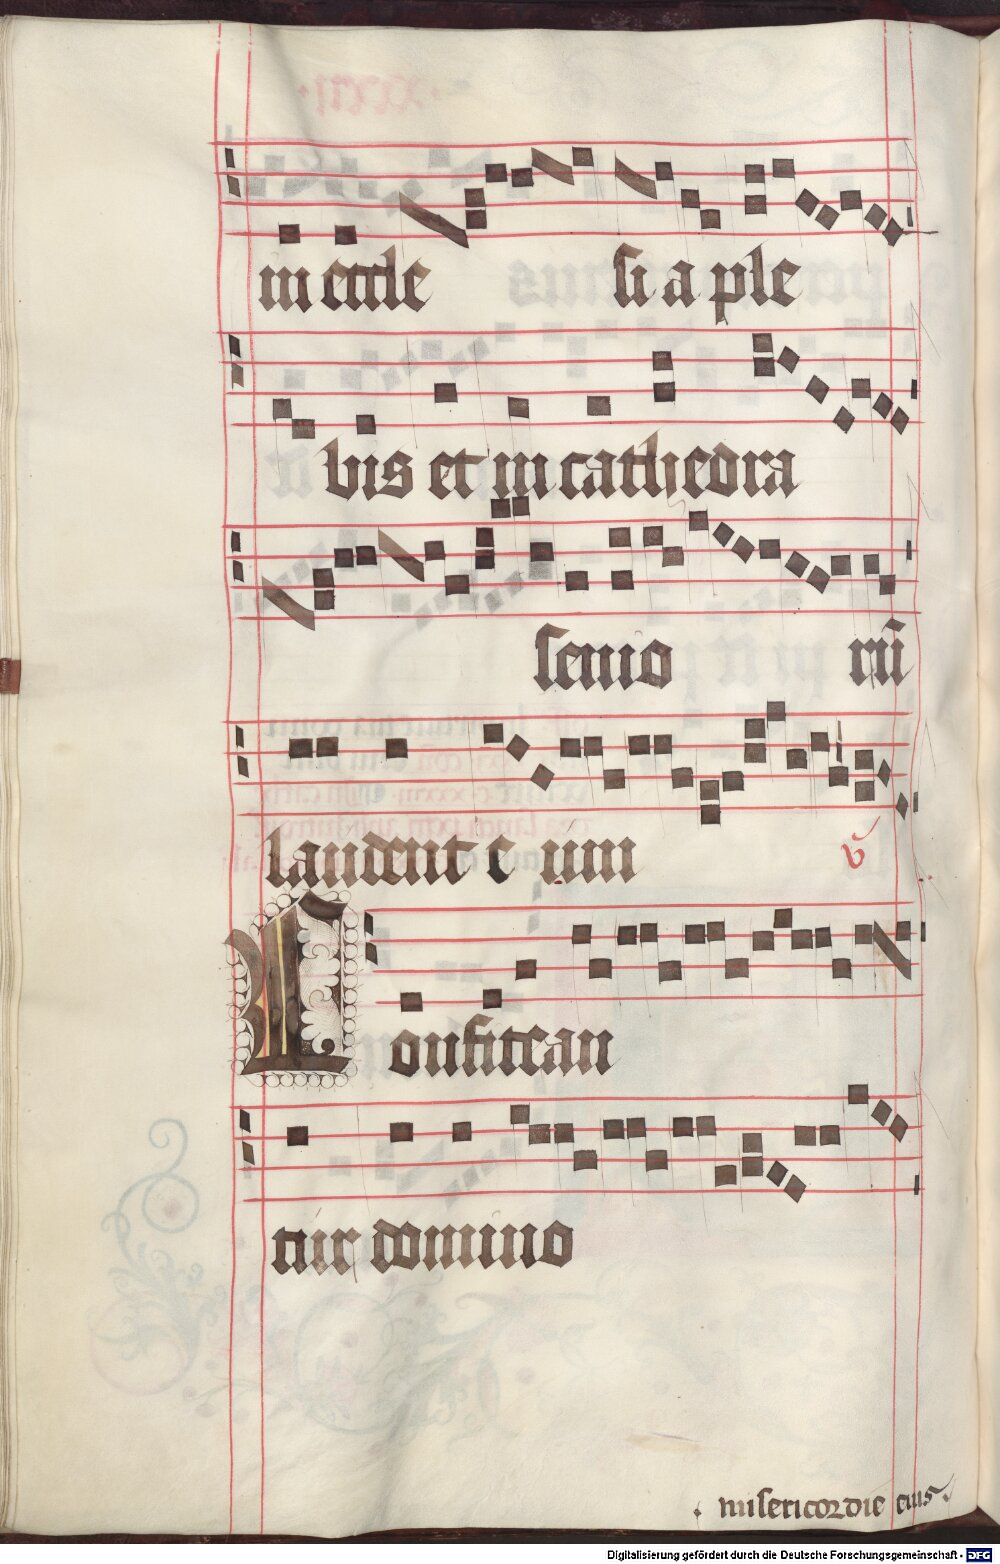 in eccle si a ple
bis et in cathedra
senio rū
laudent e um
v̄
Confitean
tur domino
. misericordie eius.
Digitalisierung gefördert durch die Deutsche Forschungsgemeinschaft - DFG